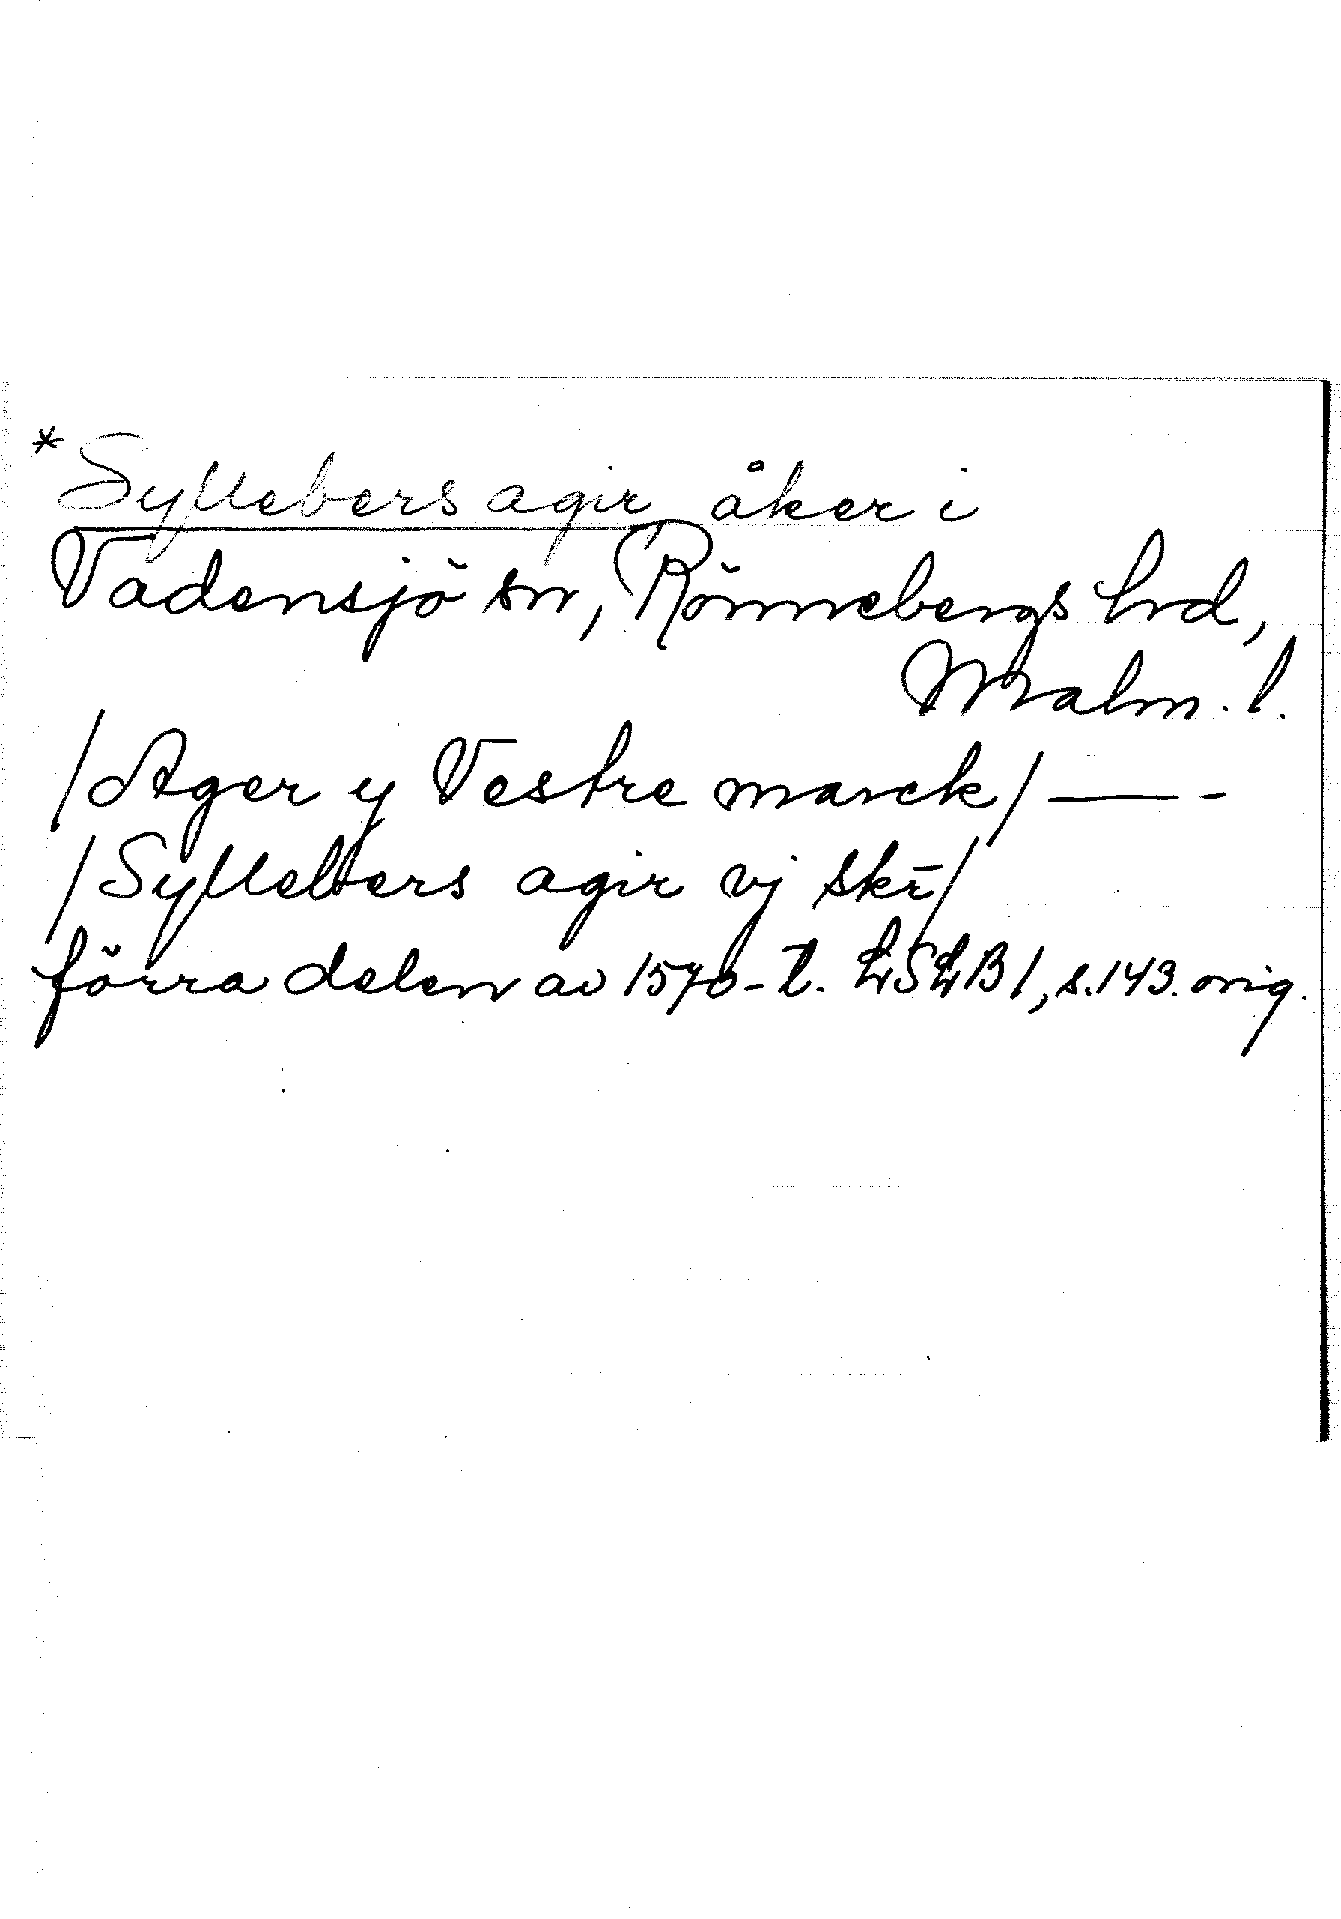 *Syllebers agir, åker i
Vadensjö sn, Rönnebergs hrd,
Malm. l.
/Ager y Vestre marck/ — -
/Syllebers agir vj skr̄/
förra delen av 1570-t. LSLB 1, s. 143. orig.